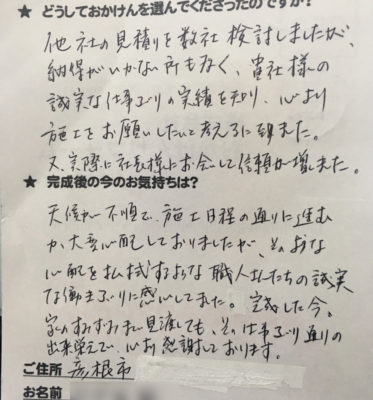 ★ どうしておかけんを選んでくださったのですか?
他社の見積りを数社検討しましたが、
納得がいかない所も多く、貴社様の
誠実な仕事ぶりの実績を知り、心より
施工をお願いしたいと考えるに到ました。
又、実際に社長様にお会いして信頼が増しました。
★ 完成後の今のお気持ちは?
天候が不順で、施工日程の通りに進む
か、大変心配しておりましたが、そのような
心配を払拭するような職人さんたちの誠実
な働きぶりに感心しました。完成した今。
家のすみずみまで見渡しても、その仕事ぶり通りの
出来栄えで、心より感謝しております。
ご住所 彦根市
お名前